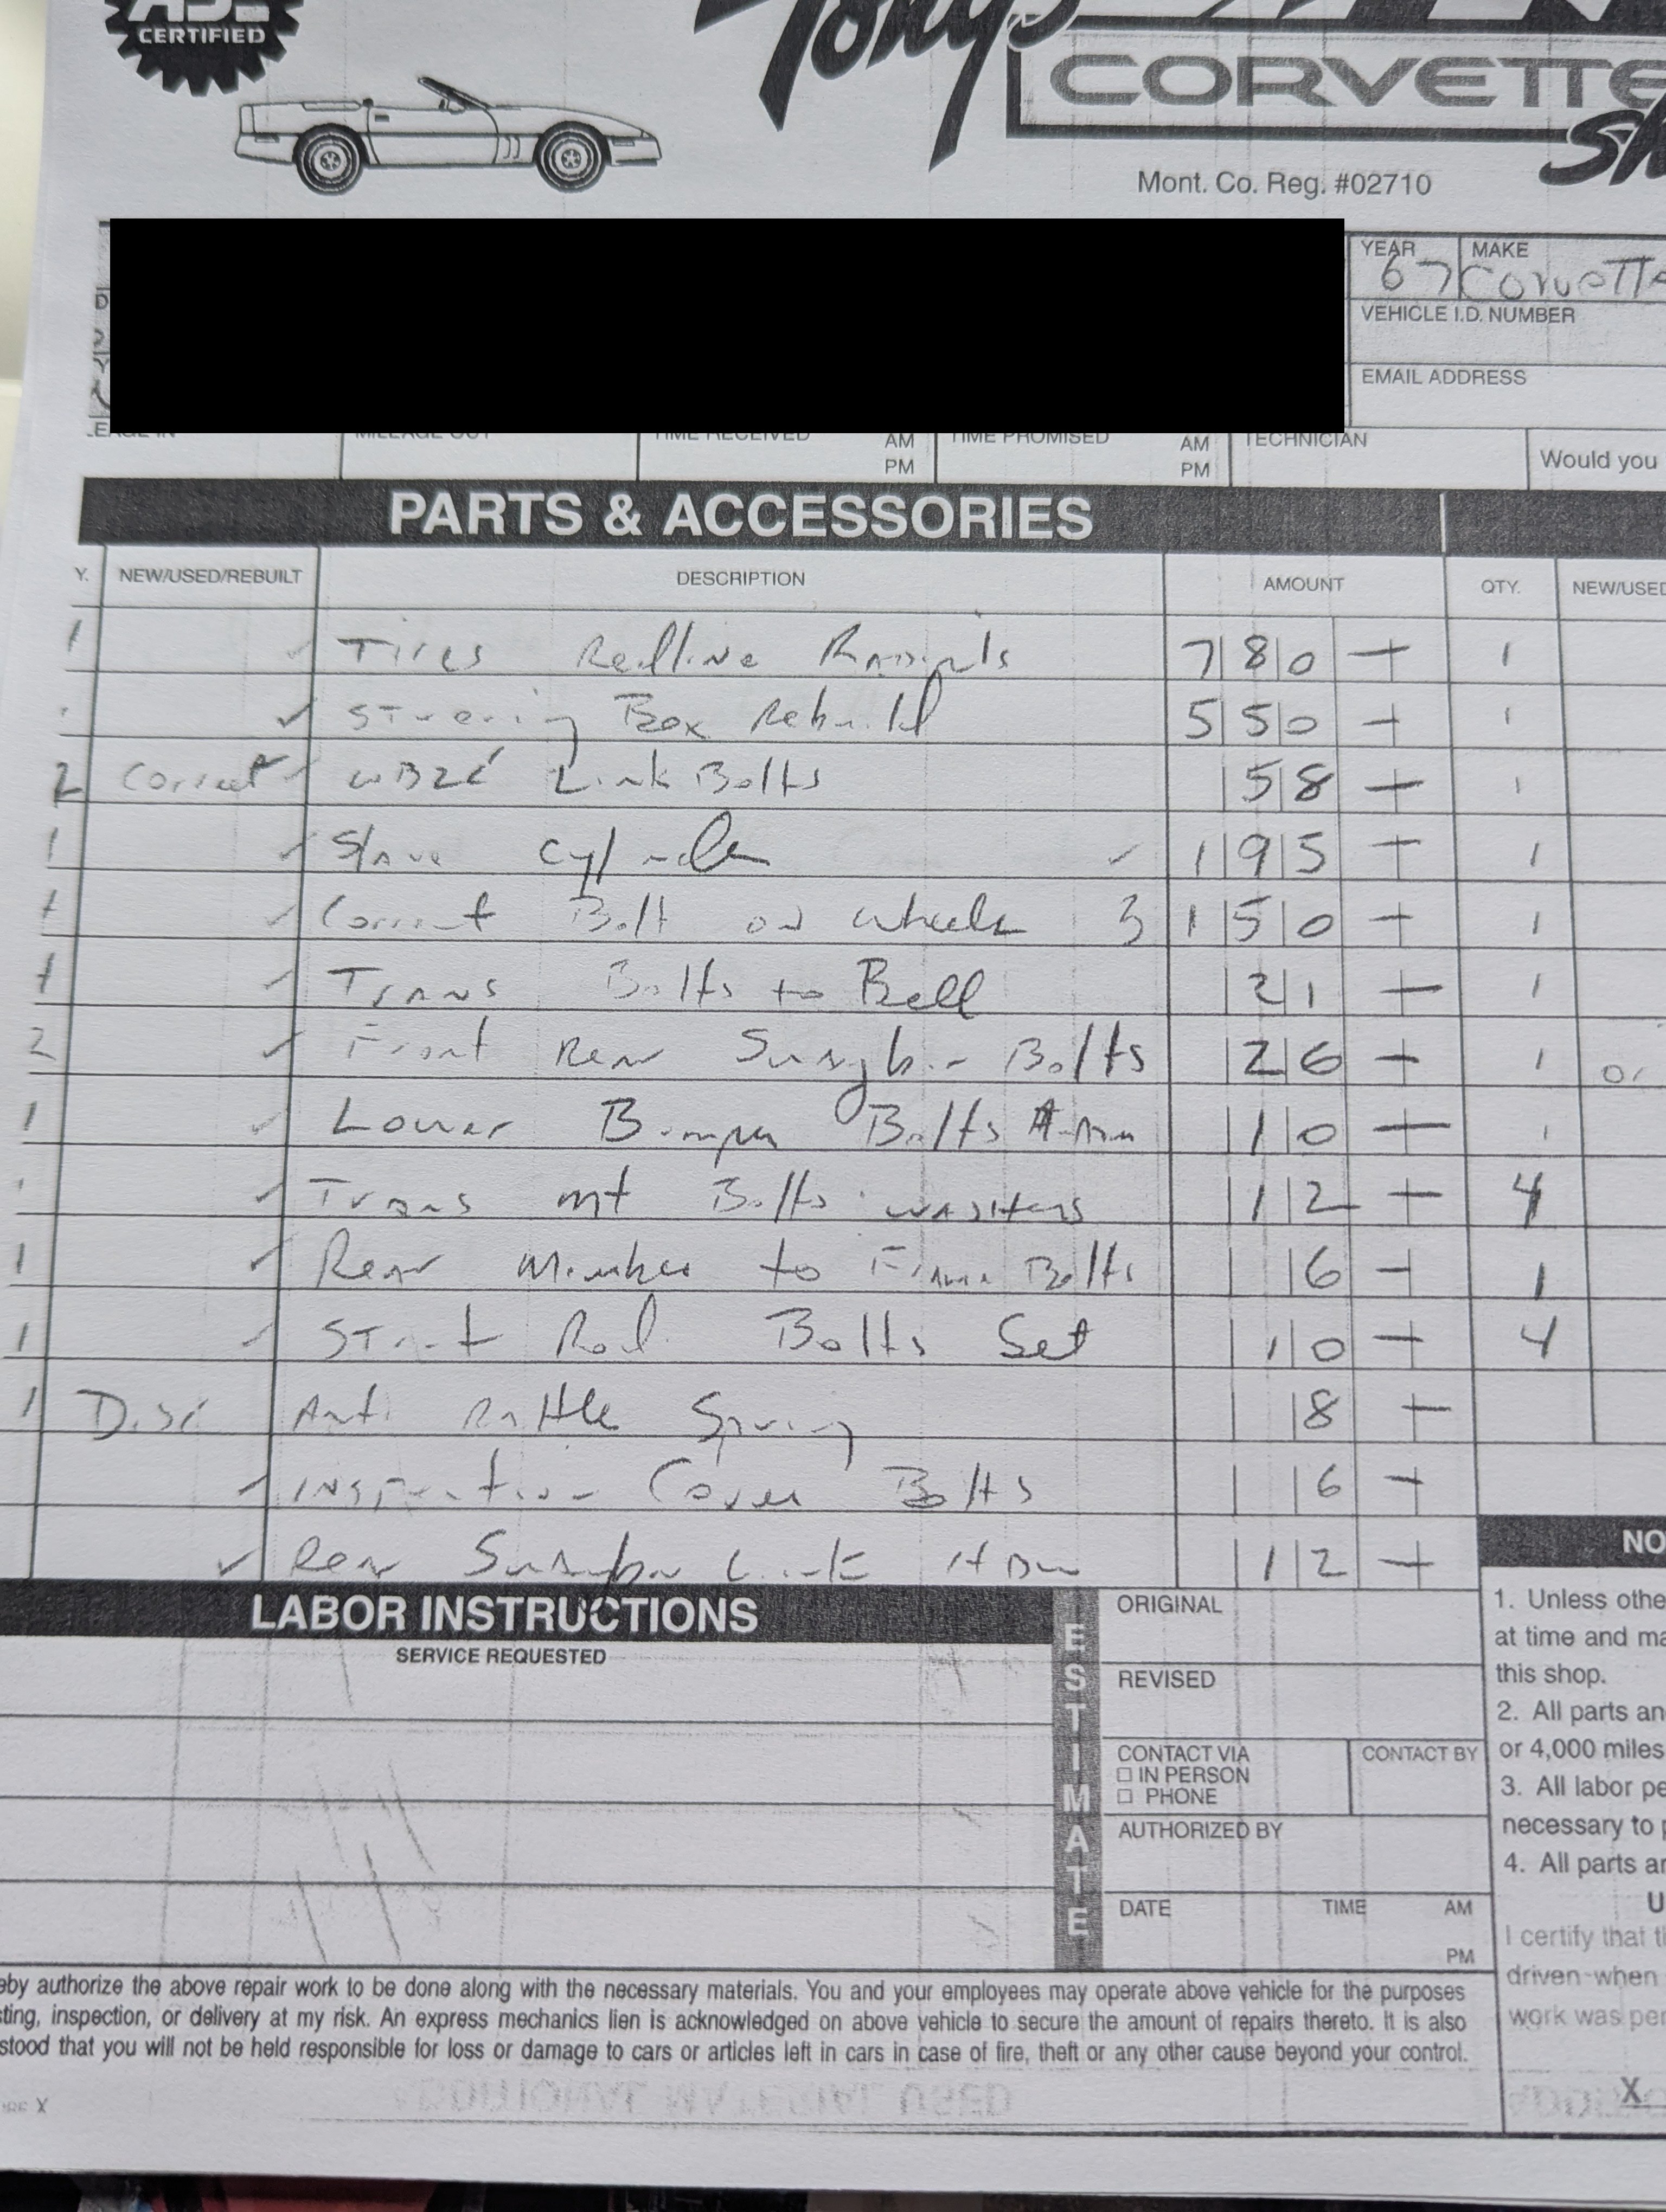 CERTIFIED
Tony's
CORVETTE
Sh
Mont. Co. Reg. #02710
YEAR MAKE
67 Corvette
VEHICLE I.D. NUMBER
EMAIL ADDRESS
MILEAGE OUT TIME RECEIVED AM PM TIME PROMISED AM PM TECHNICIAN Would you
PARTS & ACCESSORIES
Y. NEW/USED/REBUILT DESCRIPTION AMOUNT QTY. NEW/USED
1 Tires Redline Radials 780 — 1
Steering Box Rebuild 550 — 1
2 Correct Link Bolts 58 — 1
1 Slave Cylinder 195 — 1
1 Correct Bolt on wheels 3 150 — 1
1 Trans Bolts to Bell 21 — 1
2 Front Rear Bolts 26 — 1 or
1 Lower Bumper Bolts 10 — 1
Trans mt Bolts washers 12 — 4
1 Rear Member to Frame Bolts 6 — 1
1 Strut Rod Bolts Set 10 — 4
1 Disc Anti Rattle Spring 8 —
Inspection Cover Bolts 6 —
Rear Link 12 —
LABOR INSTRUCTIONS
SERVICE REQUESTED
ESTIMATE
ORIGINAL
REVISED
CONTACT VIA
☐ IN PERSON
☐ PHONE
CONTACT BY
AUTHORIZED BY
DATE TIME AM PM
NO
1. Unless othe
at time and ma
this shop.
2. All parts an
or 4,000 miles
3. All labor pe
necessary to p
4. All parts ar
U
I certify that t
driven when
work was per
X
eby authorize the above repair work to be done along with the necessary materials. You and your employees may operate above vehicle for the purposes
sting, inspection, or delivery at my risk. An express mechanics lien is acknowledged on above vehicle to secure the amount of repairs thereto. It is also
stood that you will not be held responsible for loss or damage to cars or articles left in cars in case of fire, theft or any other cause beyond your control.
X